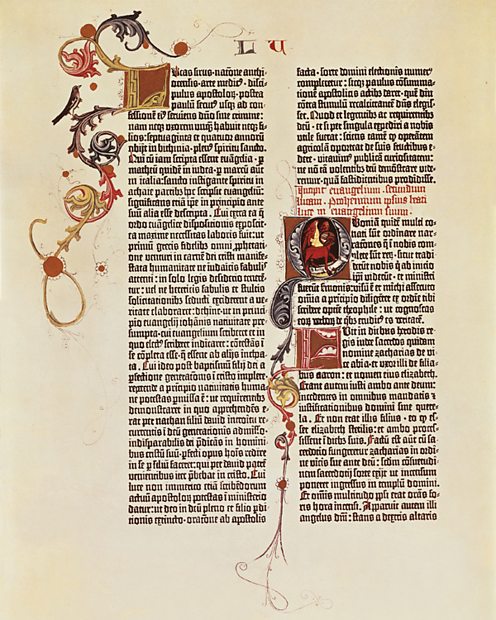 L U
Lucas sirus · natione anthi-
ocensis · arte medicus · disci-
pulus apostolorum · postea
paulū secutus usque ad con-
fessionē eius serviens dño sine crimine:
nam neque uxorem unquam habuit neque fi-
lios: septuaginta et quatuor annorū
obijt in bithinia · plenus spiritu sancto.
Qui cū iam scripta essent euāgelia · per
matheū quidē in iudea · per marcū aūt
in italia: sancto instigante spiritu in
achaie partibus hoc scripsit euāgeliū:
significans etiā ipse in principio ante
suū alia esse descripta. Cui extra ea que
ordo euāgelice dispositionis exposcit
ea maxime necessitas laboris fuit: ut
primū grecis fidelibus omni prophetati-
one venturi in carnē dei cristi manife-
stata humanitate ne iudaicis fabulis
attenti: in solo legis desiderio tenerē-
tur: vel ne hereticis fabulis et stultis
solicitationibus seducti excideret a ve-
ritate elaboraret: dehinc ut in princi-
pio euangelij iohānis nativitate pre-
sumpta · cui euangelium scriberet et in
quo electus scriberet indicaret: contestās in
se cōpleta esse · que essent ab alijs inchoa-
ta. Cui ideo post baptismū filij dei a
perfectione generationis in cristo implete
repetende a principio nativitatis huma-
ne potestas permissa est: ut requirentibus
demonstraret in quo apprehendēs e-
rat per nathan filiū david introitu re-
currentis in deū generationis admisso ·
indisparabilis dei predicās in homini-
bus cristū suū · perfecti opus hominis redire
in se per filiū faceret: qui per david patrē
venientibus iter prebebat in cristo. Cui
luce non immerito etiā scribendorum
actuū apostolorum potestas in ministerio
datur: ut deo in deū pleno et filio pdi-
tionis extincto · oratione ab apostolis
facta · sorte domini electionis numerus
compleretur: sicque paulus cōsumma-
tionē apostolicis actibus daret · quē diu
cōtra stimulū recalcitrantē dñus elegis-
set. Quod et legentibus ac requirentibus
deū · etsi per singula expediri a nobis
utile fuerat: sciens tamē quod operantem
agricolā oporteat de suis fructibus e-
dere · vitavimus publicā curiositatem:
ne nō tā volentibus deū demōstrare vide-
remur · quā fastidientibus prodidisse.
Incipit euangelium secundum
lucam · Prohemium ipsius beati
luce in euangelium suum
Quoniā quidē multi co-
nati sūt ordinare nar-
rationes que in nobis com-
plete sūt rerum · sicut tradi-
derūt nobis qui ab inicio
ipsi viderūt · et ministri
fuerūt sermonis: visū est et michi assecuto
omnia a principio diligēter ex ordine tibi
scribere optime theophile: ut cognoscas
eorum verborum de quibus eruditus es veritatē.
Fuit in diebus herodis re-
gis iudee sacerdos quidam
nomine zacharias de vi-
ce abia · et uxor illi de filia-
bus aaron: et nomen eius elizabeth.
Erant autem iusti ambo ante deum:
incedentes in omnibus mandatis et
iustificationibus domini sine quere-
la. Et non erat illis filius · eo quod es-
set elizabeth sterilis: et ambo proces-
sissent in diebus suis. Factū est aūt cū sa-
cerdotio fungeretur zacharias in ordi-
ne vicis sue ante deū: secundū cōsuetudi-
nem sacerdotij sorte exijt ut incensum
poneret ingressus in templū domini.
Et omnis multitudo populi erat orās fo-
ris hora incensi. Apparuit autem illi
angelus domini: stans a dextris altaris